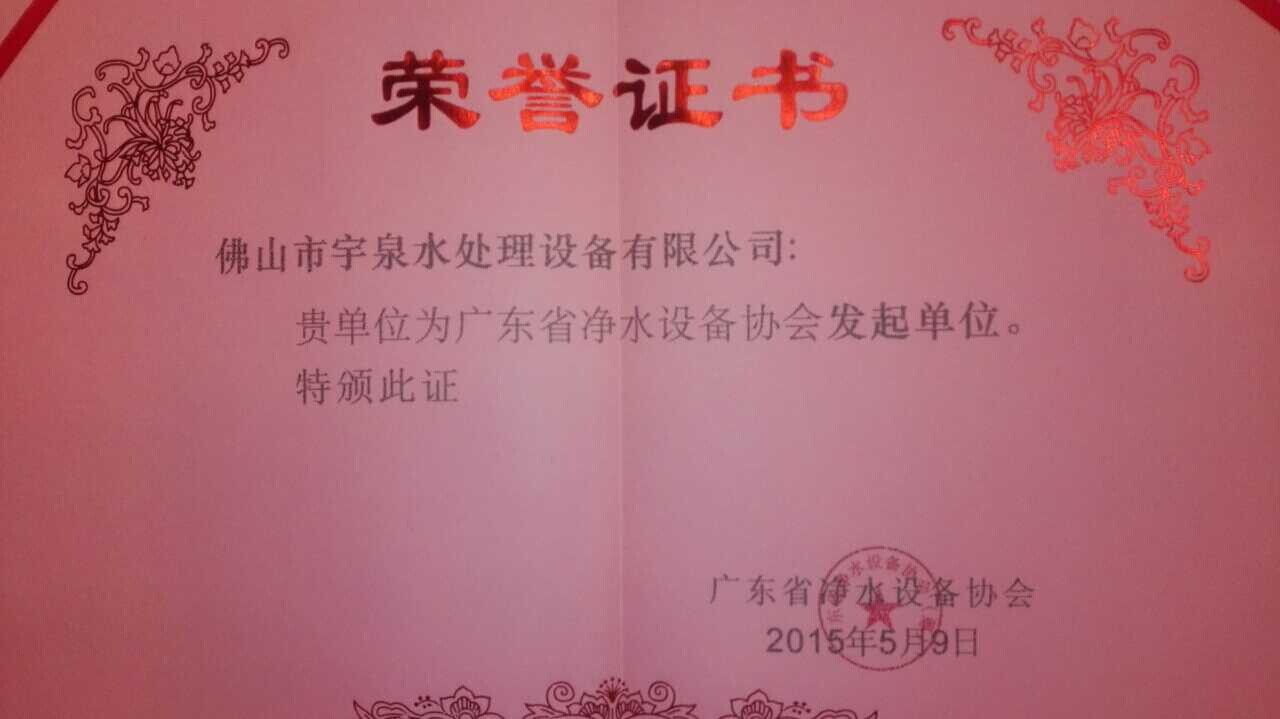 荣誉证书
佛山市宇泉水处理设备有限公司:
贵单位为广东省净水设备协会发起单位。
特颁此证
广东省净水设备协会
2015年5月9日